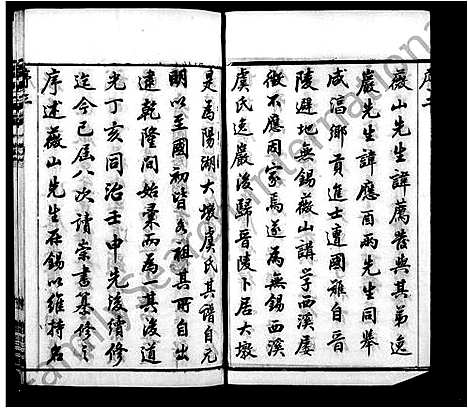 序二
薇山先生諱薦發與其弟逸
巖先生諱應酉兩先生同舉
咸淳鄉貢進士遭國難自晉
陵避地無錫薇山講學西溪屢
徵不應因家焉遂為無錫西溪
虞氏逸巖後歸晉陵卜居大墩
是為陽湖大墩虞氏其譜自元
明以至國初皆各祖其所自出
逮乾隆間始彙而為一其後道
光丁亥同治壬申先後續修
迄今已屆八次請崇書纂修之
序述薇山先生存錫以維持名
序三
FamilySearch International